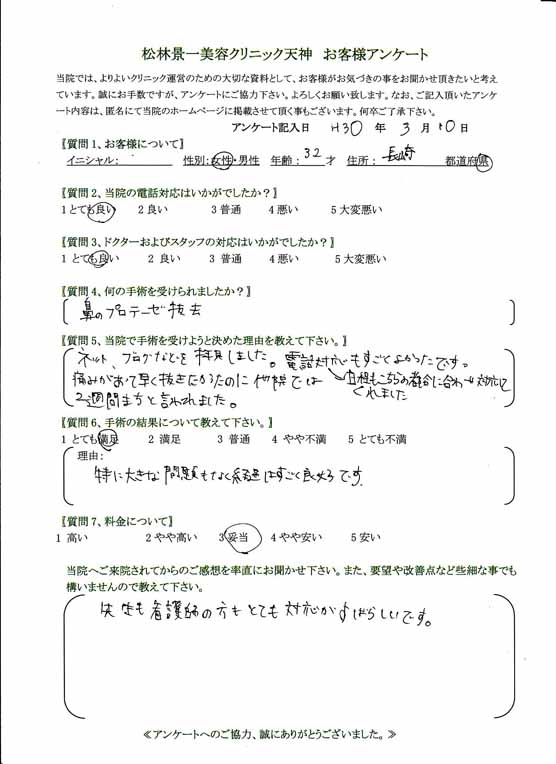 松林景一美容クリニック天神 お客様アンケート
当院では、よりよいクリニック運営のための大切な資料として、お客様がお気づきの事をお聞かせ頂きたいと考え
ています。誠にお手数ですが、アンケートにご協力下さい。よろしくお願い致します。なお、ご記入頂いたアンケ
ート内容は、匿名にて当院のホームページに掲載させて頂く事もございます。何卒ご了承下さい。
アンケート記入日 H30 年 3 月 10 日
〖質問1、お客様について〗
イニシャル: 性別:女性・男性 年齢:32才 住所:長崎 都道府県
〖質問2、当院の電話対応はいかがでしたか?〗
1とても良い 2良い 3普通 4悪い 5大変悪い
〖質問3、ドクターおよびスタッフの対応はいかがでしたか?〗
1とても良い 2良い 3普通 4悪い 5大変悪い
〖質問4、何の手術を受けられましたか?〗
鼻のプロテーゼ抜去
〖質問5、当院で手術を受けようと決めた理由を教えて下さい。〗
ネット、ブログなどを拝見しました。電話対応もすごくよかったです。
痛みがあって早く抜きたかったのに他院では
日程もこちらの都合に合わせ対応して
くれました
2週間まちと言われました。
〖質問6、手術の結果について教えて下さい。〗
1とても満足 2満足 3普通 4やや不満 5とても不満
理由:
特に大きな問題もなく経過はすごく良好です
〖質問7、料金について〗
1高い 2やや高い 3妥当 4やや安い 5安い
当院へご来院されてからのご感想を率直にお聞かせ下さい。また、要望や改善点など些細な事でも
構いませんので教えて下さい。
先生も看護師の方もとても対応がすばらしいです。
≪アンケートへのご協力、誠にありがとうございました。≫